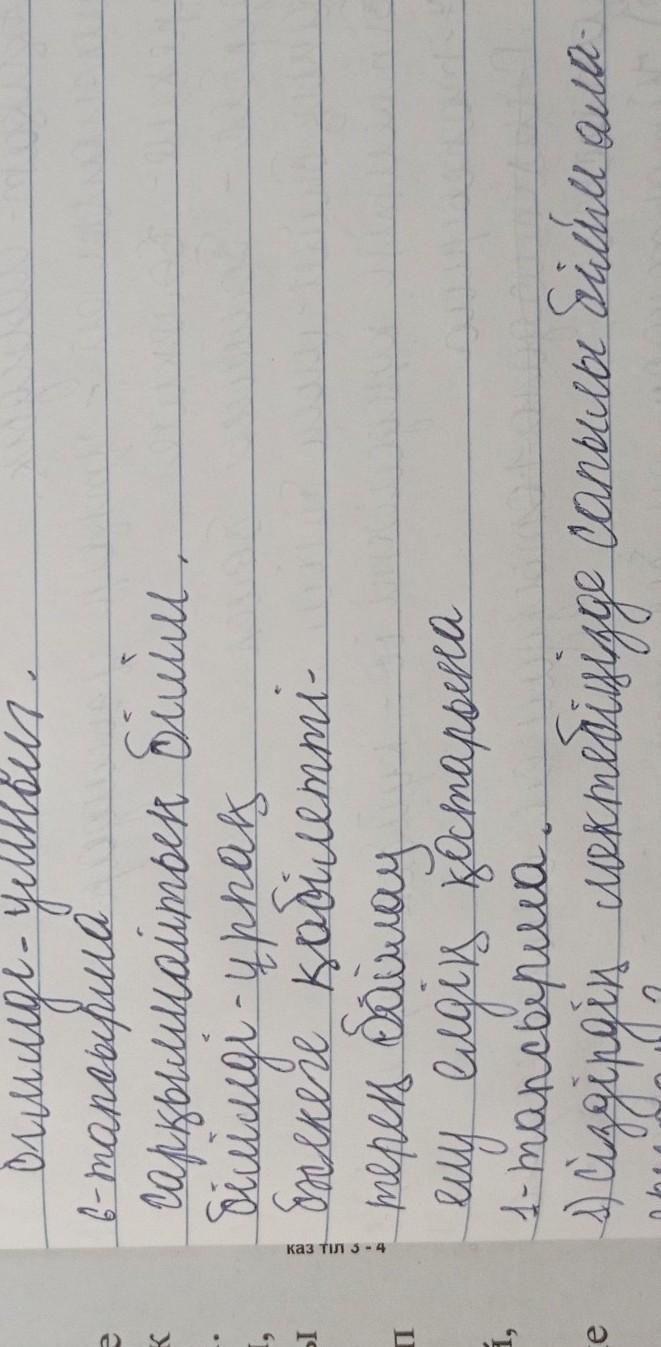 білімді - ұмтыл.
6-тапсырма
сарқылмайтын білім.
білімді - ұрпақ
бәсеке қабілетті-
терең бойлау
ену елдің қатарына
1-тапсырма.
1) Сіздердің мектебіңізде сапалы білім ала-
каз тіл 3 - 4